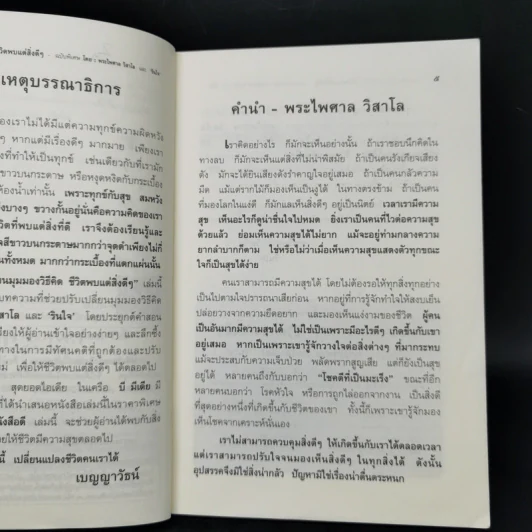 ชีวิตพบแต่สิ่งดีๆ - ฉบับพิเศษ โดย : พระไพศาล วิสาโล และ รินใจ
เหตุบรรณาธิการ
องเราไม่ได้มีแต่ความทุกข์ความผิดหวัง
ๆ หากแต่มีเรื่องดีๆ มากมาย เพียงเรา
งที่ทำให้เป็นทุกข์ เช่นเดียวกับที่เรามัก
ขาวบนกระดาษ หรือหงุดหงิดกับกระเบื้อง
ห้องน้ำเท่านั้น เพราะทุกข์กับสุข สมหวัง
งบางๆ ขวางกั้นอยู่นั่นคือความคิดของเรา
วิตที่พบแต่สิ่งที่ดี เราจึงต้องเรียนรู้และ
จสีขาวบนกระดาษมากกว่าจุดดำเพียงไม่กี่
นทั้งหมด มากกว่ากระเบื้องที่แตกแผ่นนั้น
ยนมุมมองวิธีคิด ชีวิตพบแต่สิ่งดีๆ" เล่มนี้
บทความที่ช่วยปรับเปลี่ยนมุมมองวิธีคิด
สาโล และ 'รินใจ' โดยประยุกต์คำสอน
ยงให้ผู้อ่านเข้าใจอย่างง่ายๆ และลึกซึ้ง
งในการมีทัศนคติที่ถูกต้องและปรับ
ม่ เพื่อให้ชีวิตพบแต่สิ่งดีๆ ได้ตลอดไป
สุดยอดไอเดีย ในเครือ บี มีเดีย มี
ที่ได้นำเสนอหนังสือเล่มนี้ในราคาพิเศษ
งสือดี เล่มนี้ จะช่วยผู้อ่านได้พบกับสิ่ง
ยให้ชีวิตมีความสุขตลอดไป
นี้ เปลี่ยนแปลงชีวิตคนเราได้
เบญญาวัธน์
๕
คำนำ - พระไพศาล วิสาโล
เราคิดอย่างไร ก็มักจะเห็นอย่างนั้น ถ้าเราชอบนึกคิดใน
ทางลบ ก็มักจะเห็นแต่สิ่งที่ไม่น่าพิสมัย ถ้าเป็นคนรังเกียจเสียง
ดัง มักจะได้ยินเสียงดังรำคาญใจอยู่เสมอ ถ้าเป็นคนกลัวความ
มืด แม้แต่รากไม้ก็มองเห็นเป็นงูได้ ในทางตรงข้าม ถ้าเป็นคน
ที่มองโลกในแง่ดี ก็มักแลเห็นสิ่งดีๆ อยู่เป็นนิตย์ เวลาเรามีความ
สุข เห็นอะไรก็ดูน่าชื่นใจไปหมด ยิ่งเราเป็นคนที่ไวต่อความสุข
ด้วยแล้ว ย่อมเห็นความสุขได้ไม่ยาก แม้จะอยู่ท่ามกลางความ
ยากลำบากก็ตาม ใช่หรือไม่ว่าเมื่อเห็นความสุขแสดงตัวทุกขณะ
ใจก็เป็นสุขได้ง่าย
คนเราสามารถมีความสุขได้ โดยไม่ต้องรอให้สิ่งทุกอย่าง
เป็นไปตามใจปรารถนาเสียก่อน หากอยู่ที่การรู้จักทำใจให้สงบเย็น
ปล่อยวางจากความยึดอยาก และมองเห็นแง่งามของชีวิต ผู้คน
เป็นอันมากมีความสุขได้ ไม่ใช่เป็นเพราะมีอะไรดีๆ เกิดขึ้นกับเขา
อยู่เสมอ หากเป็นเพราะเขารู้จักวางใจต่อสิ่งต่างๆ ที่มากระทบ
แม้จะประสบกับความเจ็บป่วย พลัดพรากสูญเสีย แต่ก็ยังเป็นสุข
อยู่ได้ หลายคนถึงกับบอกว่า "โชคดีที่เป็นมะเร็ง" ขณะที่อีก
หลายคนบอกว่า โรคหัวใจ หรือการถูกไล่ออกจากงาน เป็นสิ่งดี
ที่สุดอย่างหนึ่งที่เกิดขึ้นกับชีวิตของเขา ทั้งนี้ก็เพราะเขารู้จักมอง
เห็นโชคจากเคราะห์นั่นเอง
เราไม่สามารถควบคุมสิ่งดีๆ ให้เกิดขึ้นกับเราได้ตลอดเวลา
แต่เราสามารถปรับใจจนมองเห็นสิ่งดีๆ ในทุกสิ่งได้ ดังนั้น
อุปสรรคจึงมิใช่สิ่งน่ากลัว ปัญหามิใช่เรื่องน่าตื่นตระหนก